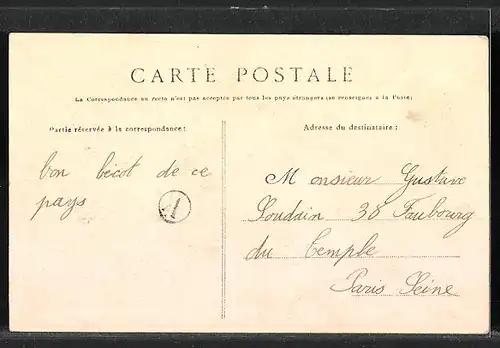 CARTE POSTALE
La Correspondance au recto n'est pas acceptée par tous les pays étrangers (se renseigner à la Poste)
Partie réservée à la correspondance :
Adresse du destinataire :
bon bécot de ce
pays
1
Monsieur Gustave
Soudain 38 Faubourg
du Temple
Paris Seine